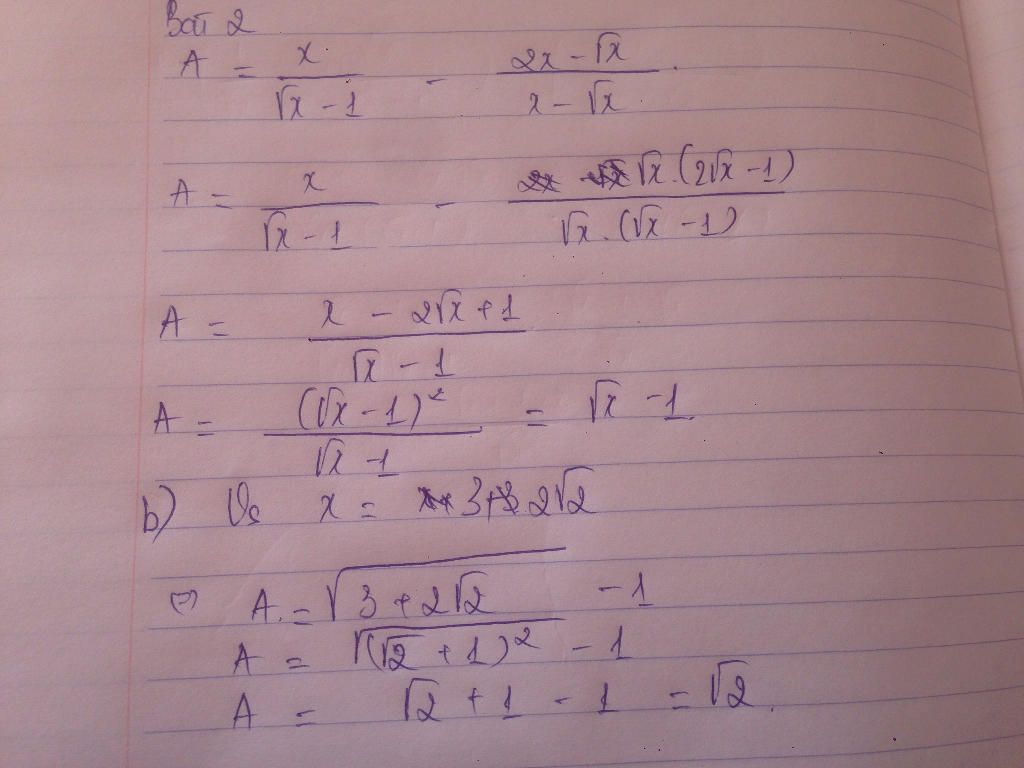 Bài 2
A = x / (√x - 1) - (2x - √x) / (x - √x).
A = x / (√x - 1) - √x.(2√x - 1) / (√x.(√x - 1))
A = (x - 2√x + 1) / (√x - 1)
A = (√x - 1)² / (√x - 1) = √x - 1
b) x = 3 + 2√2
A = √(3 + 2√2) - 1
A = √((√2 + 1)²) - 1
A = √2 + 1 - 1 = √2.